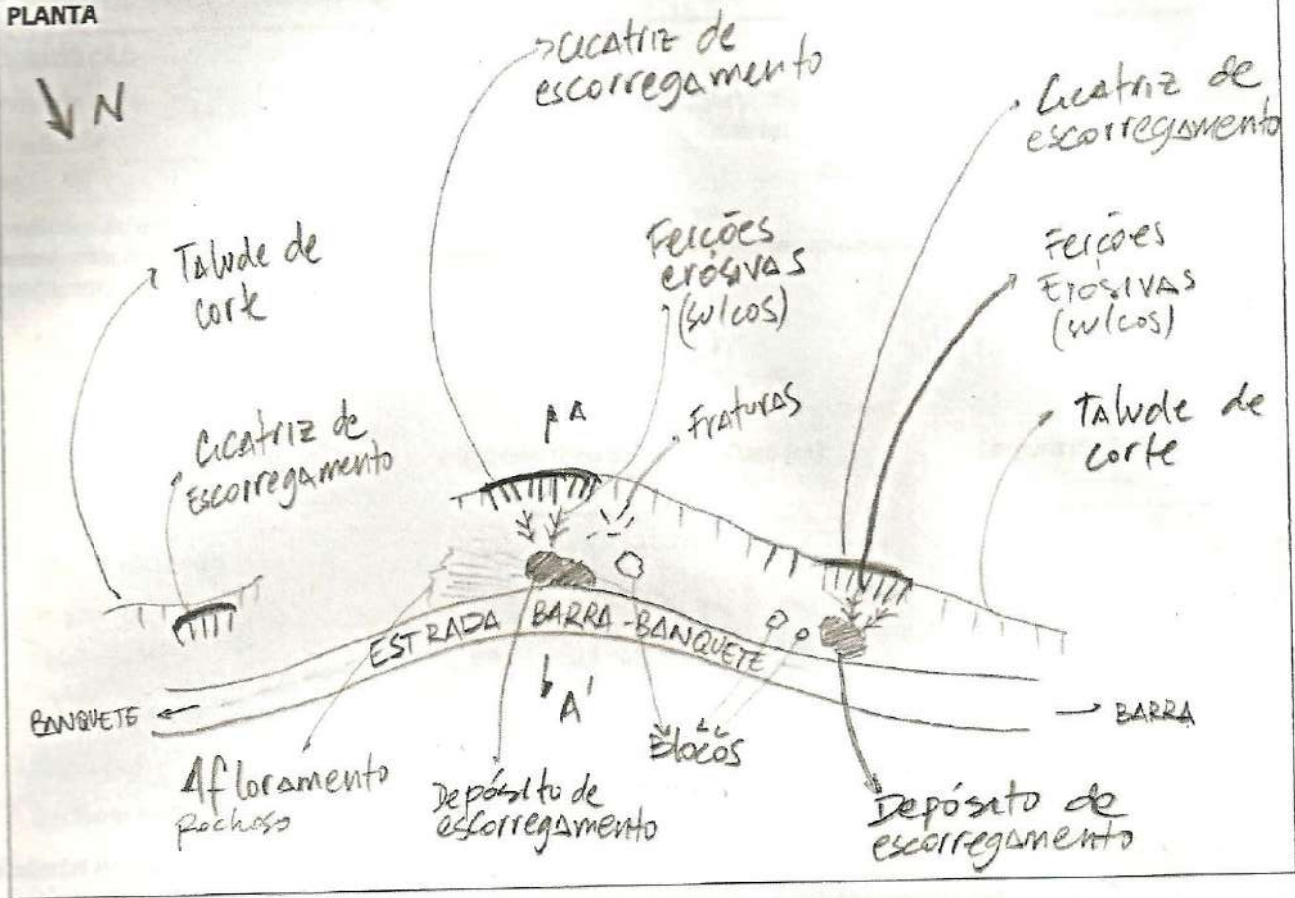 PLANTA
N
Cicatriz de
escorregamento
Cicatriz de
escorregamento
Talude de
corte
Feições
erósivas
(sulcos)
Feições
Erósivas
(sulcos)
Cicatriz de
Escorregamento
A
Fraturas
Talude de
corte
ESTRADA BARRA-BANQUETE
BANQUETE
A'
BARRA
Blocos
Afloramento
rochoso
Depósito de
escorregamento
Depósito de
escorregamento